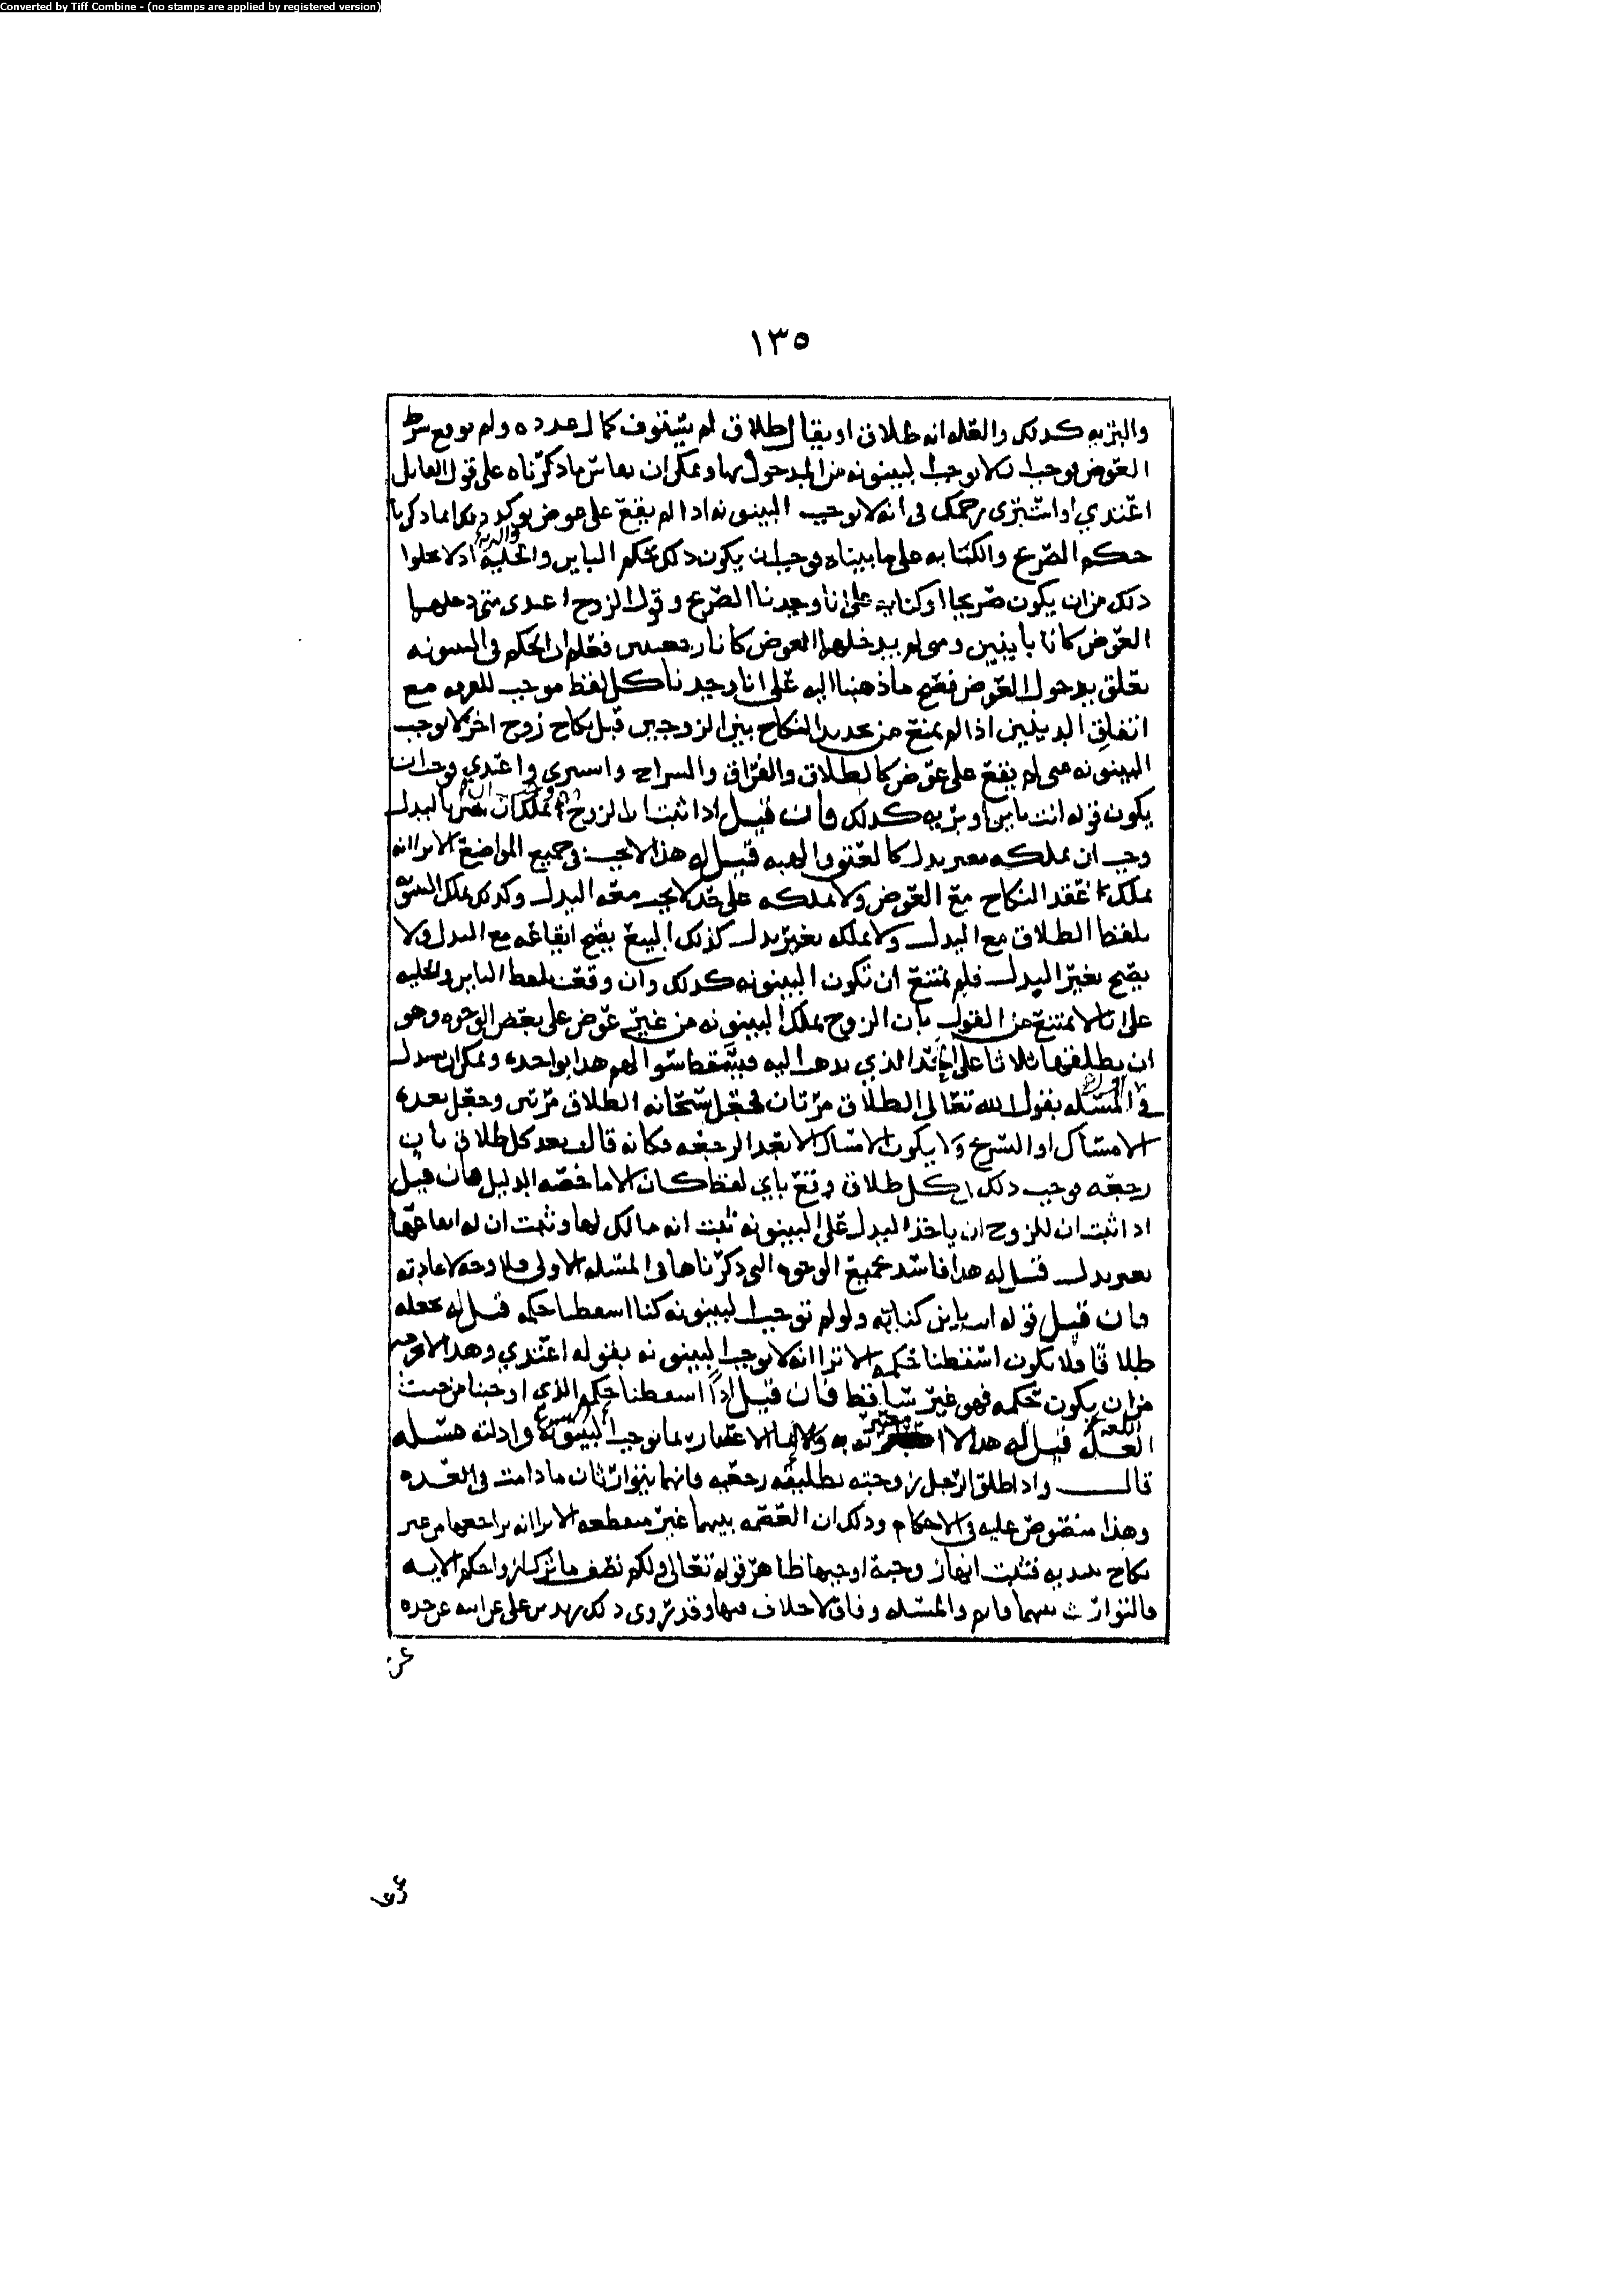 Converted by Tiff Combine - (no stamps are applied by registered version)
١٣٥
والبرية كذلك والعله انه طلاق او يقال طلاق لم يستوف كمال عدده ولم يوقع بشرط
العوض فوجب ان لا يوجب البينونه من المدخول بها ويمكن ان يقاس ما ذكرناه على قول القايل
اعتدي او استبرى رحمك فى انه لا يوجب البينونه اذا لم يقع على عوض يوكد ذلك ما ذكرنا
حكم الصريح والكنايه على ما بيناه فوجب ان يكون ذلك حكم الباين والخليه والبريه اذ لا يخلوا
ذلك من ان يكون صريحا او كنايه على انا وجدنا الصريح وقول الزوج اعتدى متى دخلهما
العوض كانا باينين ومتى لم يدخلهما العوض كانا رجعيين فعلم ان الحكم فى البينونه
يتعلق بدخول العوض فصح ما ذهبنا اليه على انا وجدنا كل لفظ موجب للفرقه مع
اتفاق الدينين اذا لم يمنع من تجديد النكاح بين الزوجين قبل نكاح زوج اخر لا يوجب
البينونه متى لم يقع على عوض كالطلاق والفراق والسراح واستبرى واعتدي فوجب ان
يكون قوله انت باين وبريه كذلك فان قيل اذا ثبت ان الزوج يملك ان بالبدل
وجب ان يملكه بغير بدل كالعتق والهبه قيل له هذا لا يجب فى جميع المواضع الا ترا انه
يملك عقد النكاح مع العوض ولا يملكه على حد لا يجب معه البدل وكذلك يملك البينونه
بلفظ الطلاق مع البدل ولا يملكه بغير بدل كذلك البيع يصح ايقاعه مع البدل ولا
يصح بغير البدل فلم يمتنع ان تكون البينونه كذلك وان وقعت بلفظ الباين والخليه
على انا لا نمتنع من القول بان الزوج يملك البينونه من غير عوض على بعض الوجوه وهو
ان يطلقها ثلاثا على الحد الذي يذهب اليه فيسقط سوالهم هذا بواحده ويمكن ان يستدل
في المسئله بقول الله تعالى الطلاق مرتان فجعل سبحانه الطلاق مرتين وجعل بعده
الامساك او التسريح ولا يكون الامساك الا بعد الرجعه فكانه قال بعد كل طلاق باين
رجعه فوجب ذلك فى كل طلاق وقع باي لفظ كان الا ما خصه الدليل فان قيل
اذا ثبت ان للزوج ان ياخذ البدل على البينونه ثبت انه مالك لها وثبت ان له ايقاعها
بغير بدل قيل له هذا فاسد بجميع الوجوه التى ذكرناها فى المسئله الاولى فلا وجه لاعادته
فان قيل قوله انت باين كنايه ولو لم توجب البينونه كنا اسقطنا حكمه قيل له نجعله
طلاقا فلا نكون اسقطنا حكمه الا ترا انه لا يوجب البينونه بقوله اعتدي وهذا لا
من ان يكون حكمه فهو غير ساقط فان قيل اذا اسقطنا حكمه الذي اوجبنا من حيث
اللغه قيل له هذا لا معتبر به ولانها الاعتبار بما توجب البينونه وادلته مسئله
قال واذا طلق الرجل زوجته تطليقه رجعيه فانهما يتوارثان ما دامت فى العده
وهذا منصوص عليه فى الاحكام وذلك ان العصمه بينهما غير منقطعه الا ترا انه يراجعها من غير
نكاح جديد فثبت انها زوجة اوجبها ظاهر قوله تعالى ولكم نصف ما ترك ازواجكم الايه
فالتوارث بينهما قايم والمسئله وفاق لا خلاف فيها وقد روى ذلك زيد بن على عن ابيه عن جده
عن